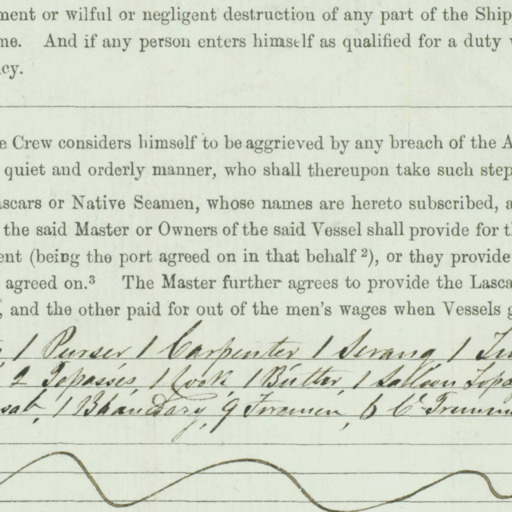 ment or wilful or negligent destruction of any part of the Ship
me. And if any person enters himself as qualified for a duty
cy.
e Crew considers himself to be aggrieved by any breach of the A
quiet and orderly manner, who shall thereupon take such step
ascars or Native Seamen, whose names are hereto subscribed, a
the said Master or Owners of the said Vessel shall provide for t
ent (being the port agreed on in that behalf ²), or they provide
agreed on.³ The Master further agrees to provide the Lasca
, and the other paid for out of the men's wages when Vessels g
1 Purser 1 Carpenter 1 Serang 1
2 Topasses, 1 Cook, 1 Butler, 1 Saloon Topa
sab, 1 Bhandary, 9 Firemen, 6 Cl Trimm